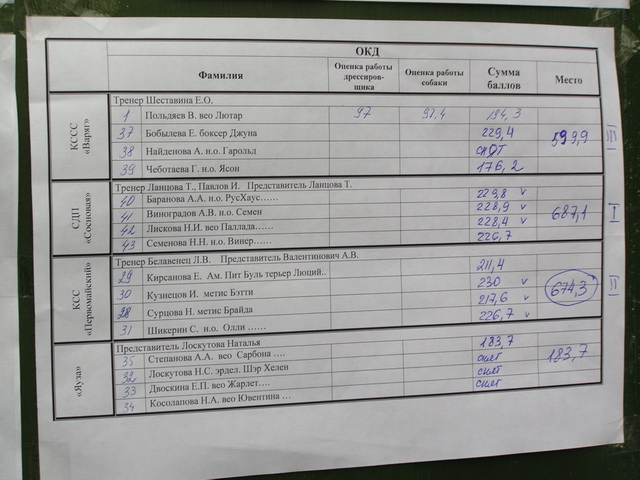 ОКД
Фамилия Оценка работы дрессировщика Оценка работы собаки Сумма баллов Место
КССС «Варяг»
Тренер Шеставина Е.О.
1 Польдяев В. вео Лютар 97 97,4 194,3
37 Бобылева Е. боксер Джуна 229,4 599,9 III
38 Найденова А. н.о. Гарольд снят
39 Чеботаева Г. н.о. Ясон 176,2
СДП «Сосновая»
Тренер Ланцова Т., Павлов И. Представитель Ланцова Т.
40 Баранова А.А. н.о. РусХаус...... 229,8 v
41 Виноградов А.В. н.о. Семен 228,9 v 687,1 I
42 Лискова Н.И. вео Паллада...... 228,4 v
43 Семенова Н.Н. н.о. Винер...... 226,7
КСС «Первомайский»
Тренер Белавенец Л.В. Представитель Валентинович А.В.
29 Кирсанова Е. Ам. Пит Буль терьер Люций.. 211,4
30 Кузнецов И. метис Бэтти 230 v 674,3 II
28 Сурцова Н. метис Брайда 217,6 v
31 Шикерин С. н.о. Олли ...... 226,7 v
«Яуза»
Представитель Лоскутова Наталья
35 Степанова А.А. вео Сарбона .... 183,7 183,7
32 Лоскутова Н.С. эрдел. Шэр Хелен снят
33 Двоскина Е.П. вео Жарлет.... снят
34 Косолапова Н.А. вео Ювентина ... снят